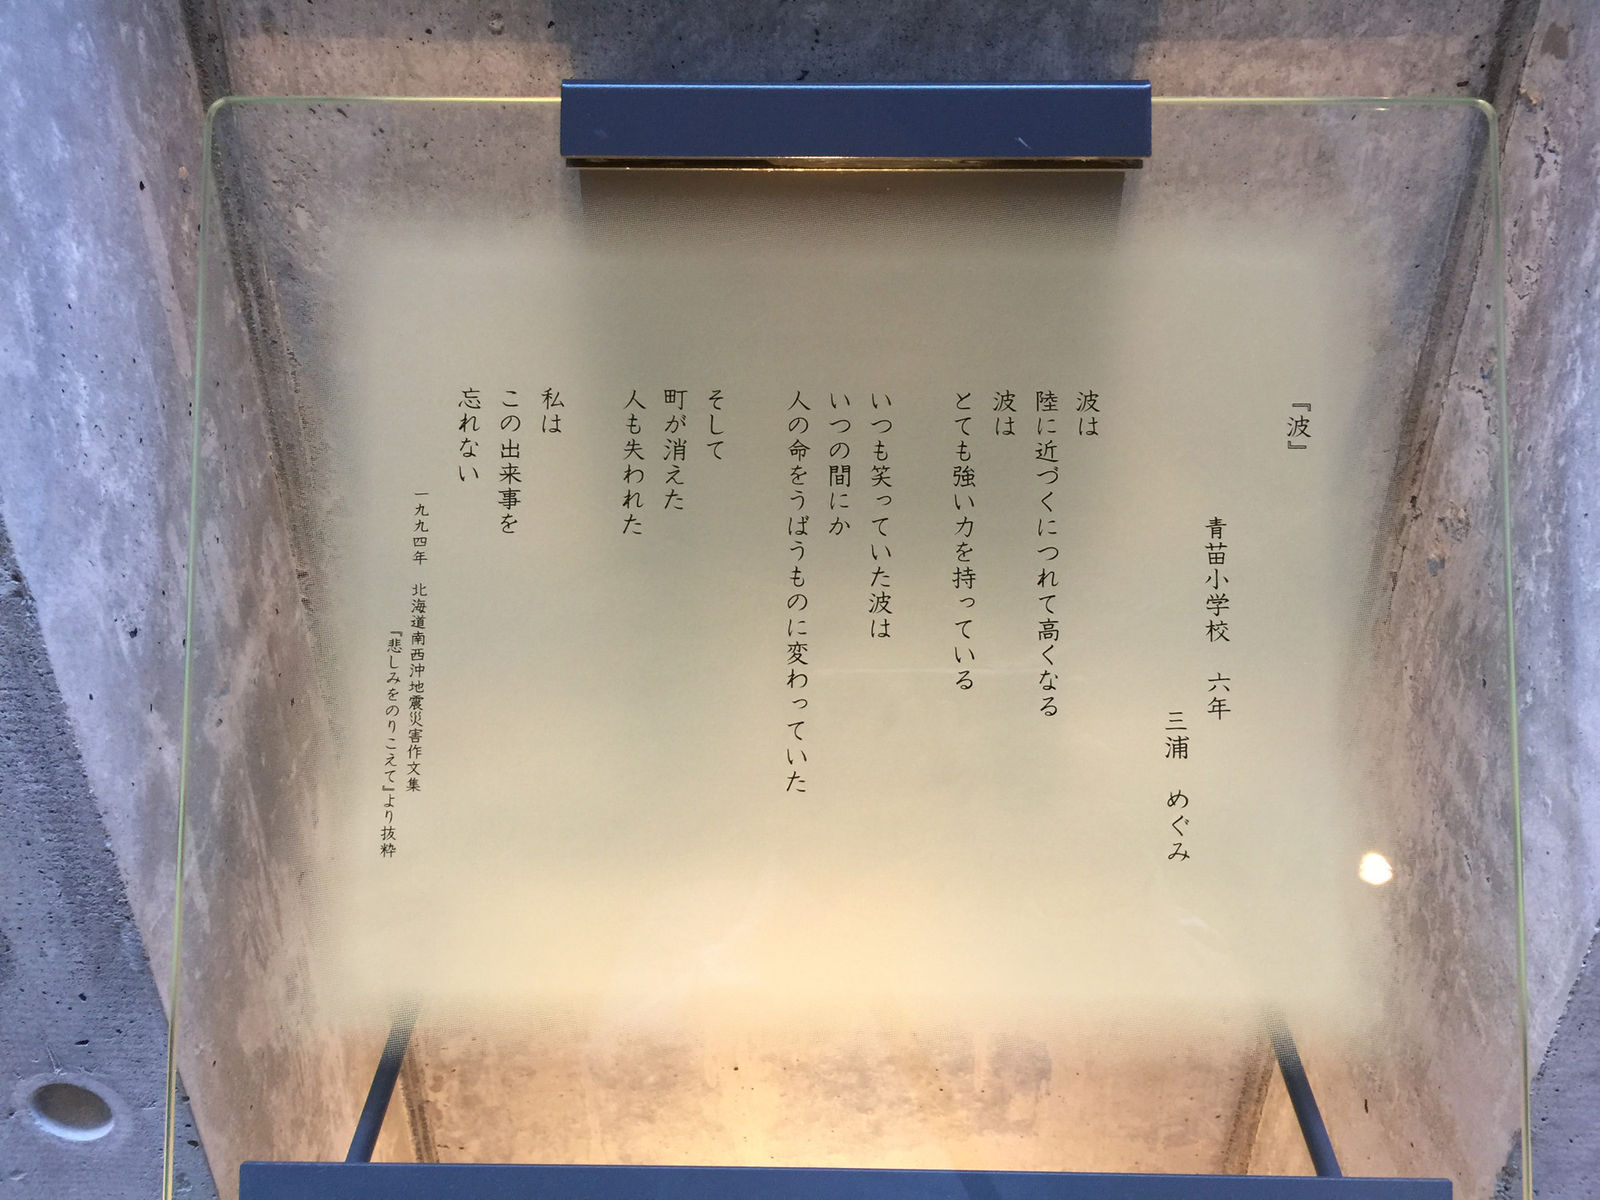 『波』
青苗小学校　六年
三浦　めぐみ
波は
陸に近づくにつれて高くなる
波は
とても強い力を持っている
いつも笑っていた波は
いつの間にか
人の命をうばうものに変わっていた
そして
町が消えた
人も失われた
私は
この出来事を
忘れない
一九九四年　北海道南西沖地震災害作文集
『悲しみをのりこえて』より抜粋